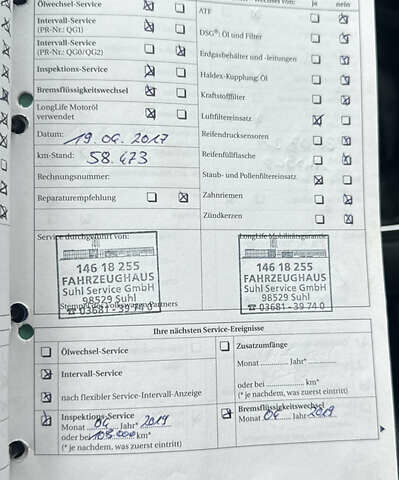 Ölwechsel-Service
Intervall-Service
(PR-Nr.: QG1)
Intervall-Service
(PR-Nr.: QG0/QG2)
Inspektions-Service
Bremsflüssigkeitswechsel
LongLife Motoröl
verwendet
Datum: 19.04.2017
km-Stand: 58.473
Rechnungsnummer:
Reparaturempfehlung
ja nein
ATF
DSG®: Öl und Filter
Erdgasbehälter und -leitungen
Haldex-Kupplung: Öl
Kraftstofffilter
Luftfiltereinsatz
Reifendrucksensoren
Reifenfüllflasche
Staub- und Pollenfiltereinsatz
Zahnriemen
Zündkerzen
Service durchgeführt von:
146 18 255
FAHRZEUGHAUS
Suhl Service GmbH
98529 Suhl
Stempel des Volkswagen Partners
☎ 03681 - 39 74 0
LongLife Mobilitätsgarantie
146 18 255
FAHRZEUGHAUS
Suhl Service GmbH
98529 Suhl
☎ 03681 - 39 74 0
Ihre nächsten Service-Ereignisse
Ölwechsel-Service
Intervall-Service
nach flexibler Service-Intervall-Anzeige
Inspektions-Service
Monat 04 Jahr* 2019
oder bei km*
(* je nachdem, was zuerst eintritt)
Zusatzumfänge
Monat Jahr*
oder bei km*
(* je nachdem, was zuerst eintritt)
Bremsflüssigkeitswechsel
Monat 04 Jahr 2019